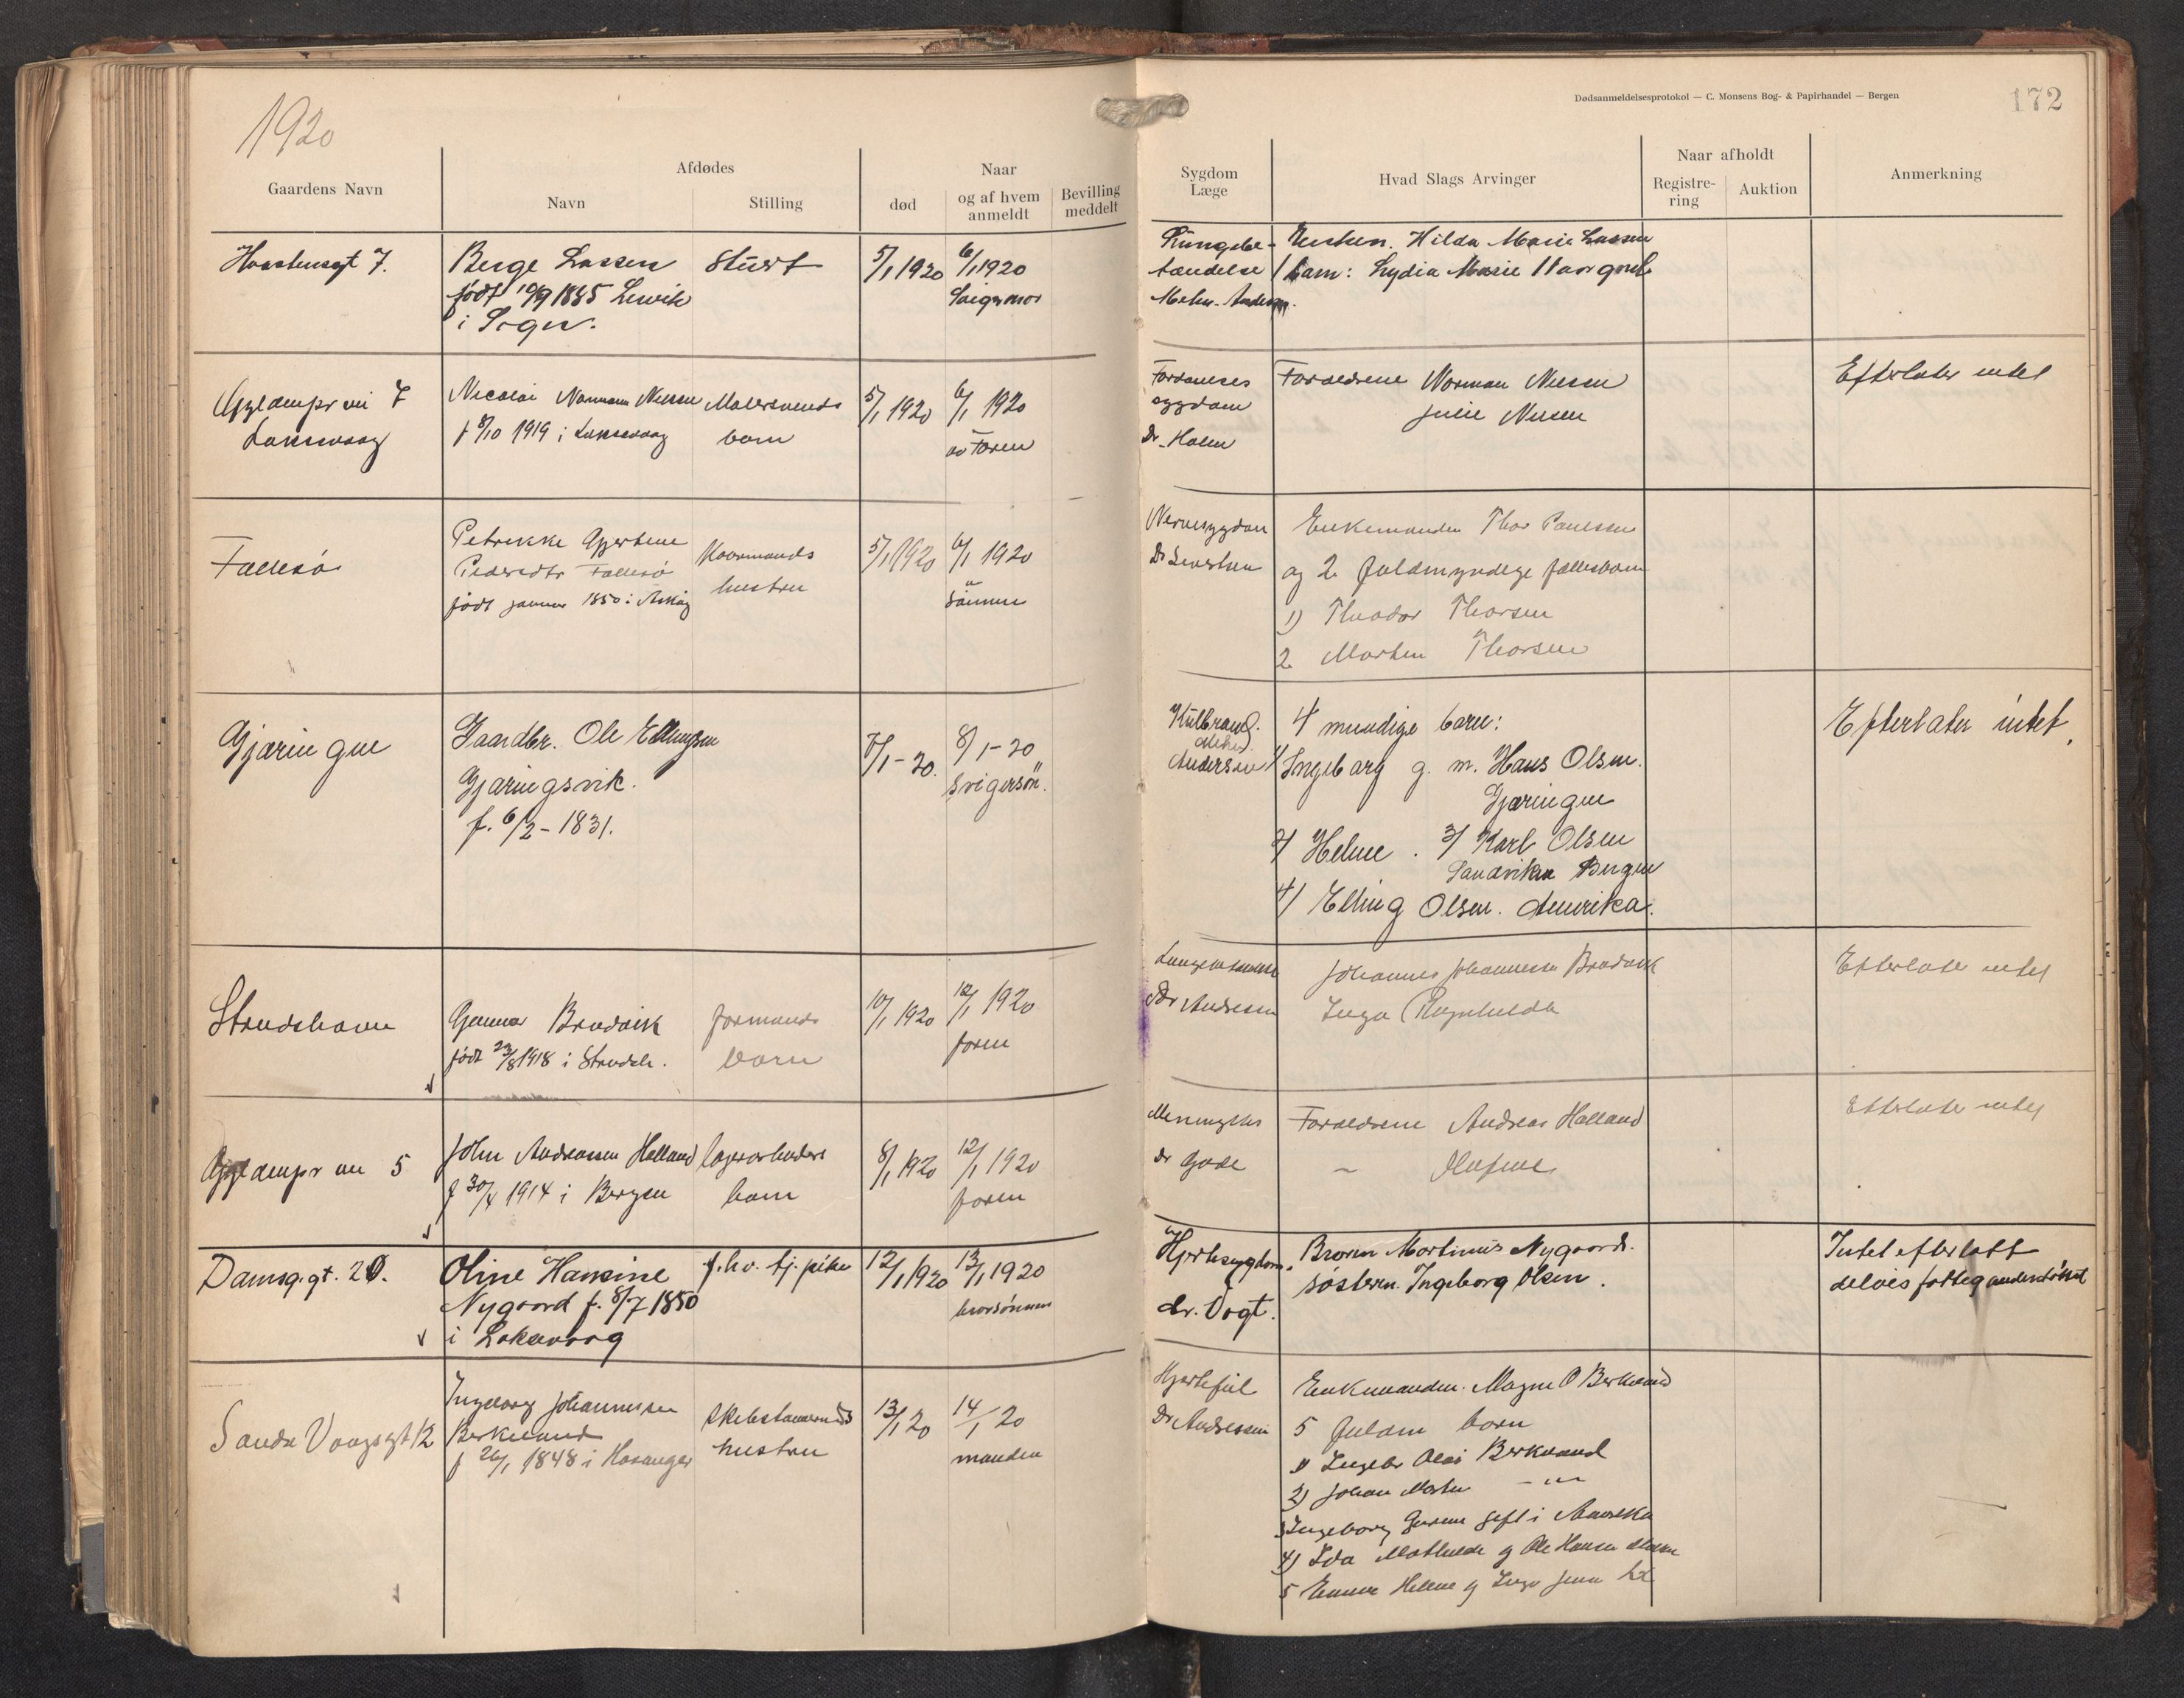 1920
Dødsanmeldelsesprotokol — C. Monsens Bog- & Papirhandel — Bergen
172
Gaardens Navn
Afdødes
Navn
Stilling
død
Naar
og af hvem
anmeldt
Bevilling
meddelt
Sygdom
Læge
Hvad Slags Arvinger
Naar afholdt
Registre-
ring
Auktion
Anmerkning
7.
Berge Lassen
født 10/9 1885
i Sogn.
Stuert
5/1 1920
6/1 1920
Lungebe-
tændelse
Enken. Hilda Marie Lassen
1 barn: Lydia Marie
7
Nicolai Normann Nilsen
f 8/10 1919 i Laksevaag
Malersvends
barn
5/1 1920
6/1 1920
av Faren
sygdom
Dr
Forældrene Norman Nilsen
Julie Nilsen
Efterlater intet
Petrikke Gjertine
Pedersdtr
født januar 1850 i Askøy
hustru
5/1 1920
6/1 1920
sönnen
Nervesygdom
Dr Sivertsen
Enkemanden Thor Paulssen
og 2 fuldmyndige fællesbarn
1) Theodor Thorsen
2 Morten Thorsen
Gjæringen
Gaardbr. Ole Ellingsen
Gjæringsvik.
f. 6/2 - 1831.
/1 - 20.
8/1 - 20
svigersön.
Kulbrand.
Andersen
4 myndige barn:
1/ Ingeborg g. m. Hans Olsen.
Gjæringen
2/ Helene . 3/ Karl Olsen
Sandviken Bergen
4/ Elling Olsen. Amerika.
Efterlater intet.
Strudshavn
Gunnar Bradvik
født 23/8 1918 i Strudsh.
formands
barn
10/1 1920
12/1 1920
faren
Dr Andressen
Johannes Johannessen Bradvik
Inga Ragnhilda
Efterlater intet
5
John Andreassen Halland
f 30/4 1914 i Bergen
lagerarbeiders
barn
8/1 1920
12/1 1920
faren
dr Gade
Forældrene Andreas Halland
Efterlater intet
Damsg.gt. 20.
Oline Hansine
Nygaard f. 8/7 1850
i Laksevaag
f.hv. tj. pike
12/1 1920
13/1 1920
brorsönnen
Hjertesygdom.
dr. Vogt.
Broren Martinus Nygaard.
søsteren. Ingeborg Olsen.
Intet efterlatt
delvis fattigunderstøttet
12
Ingeborg Johannessen
Berkeland
f 26/1 1848 i Hosanger
hustru
13/1 20
14/1 20
manden
Hjertefeil
Dr Andressen
Enkemanden. Magne O
5 fuldm barn
1)
2) Johan
3 Ingeborg gift i Amerika
4) Ida Mathilde g Ole Hansen
5 Helene g